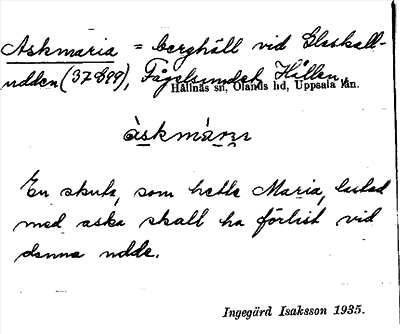 Askmaria = berghäll vid Elaskall-
udden (37 B99), Fågelsundet, Hållen,
Hållnäs sn, Olands hd, Uppsala län.
àskmár
En skuta, som hette Maria, lastad
med aska skall ha förlist vid
denna udde.
Ingegärd Isaksson 1935.